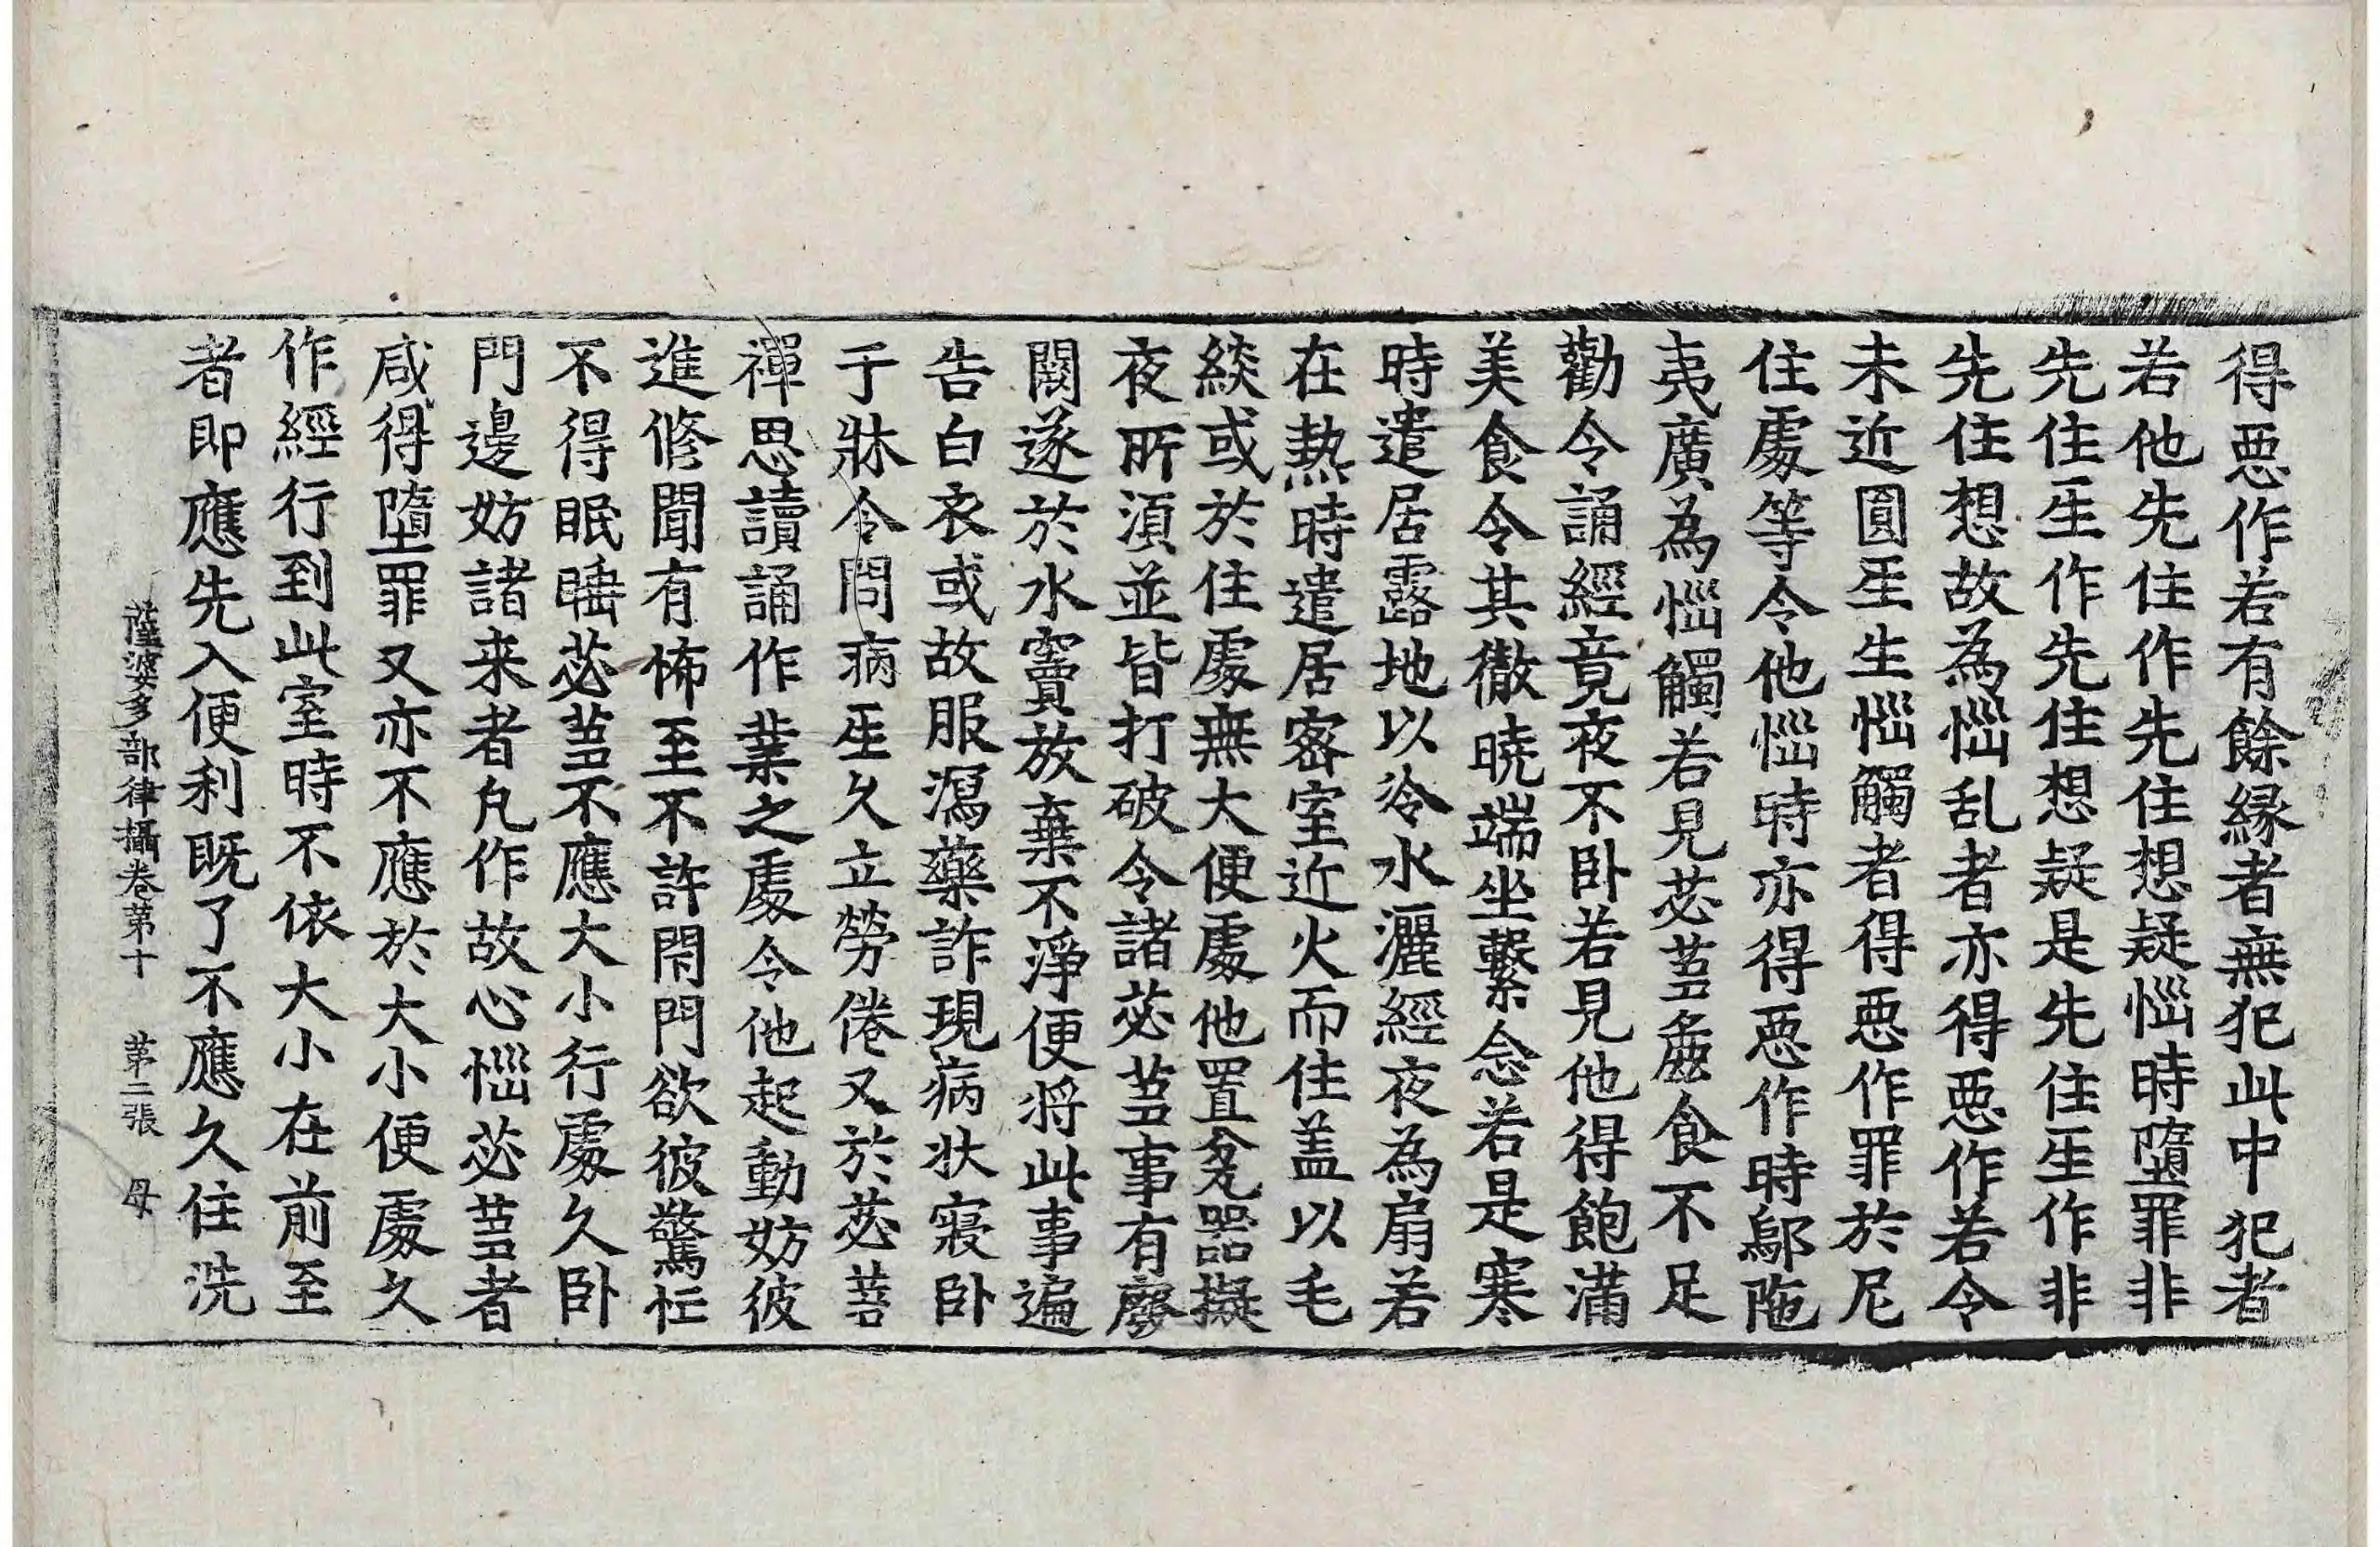 得惡作若有餘縁者無犯此中犯者
若他先住作先住想疑惱時墮罪非
先住𤯔作先住想疑是先住𤯔作非
先住想故為惱乱者亦得惡作若令
未近圓𤯔生惱觸者得惡作罪於尼
住處等令他惱時亦得惡作時鄔陁
夷廣為惱觸若見苾蒭麁食不足
勸令誦經竟夜不卧若見他得飽滿
美食令其徹曉端坐繫念若是寒
時遣居露地以冷水灑經夜為扇若
在熱時遣居密室近火而住盖以毛
緂或於住處無大便處他置瓫器擬
夜所須並皆打破令諸苾蒭事有廢
闕遂於水竇放棄不淨便將此事遍
告白衣或故服瀉藥詐現病状寢卧
于牀令問病𤯔久立勞倦又於苾蒭
禪思讀誦作業之處令他起動妨彼
進修聞有怖至不許閇門欲彼驚忙
不得眠睡苾蒭不應大小行處久卧
門邊妨諸来者凡作故心惱苾蒭者
咸得墮罪又亦不應於大小便處久
作經行到此室時不依大小在前至
者即應先入便利既了不應久住洗
薩婆多部律攝卷第十 第二張 母